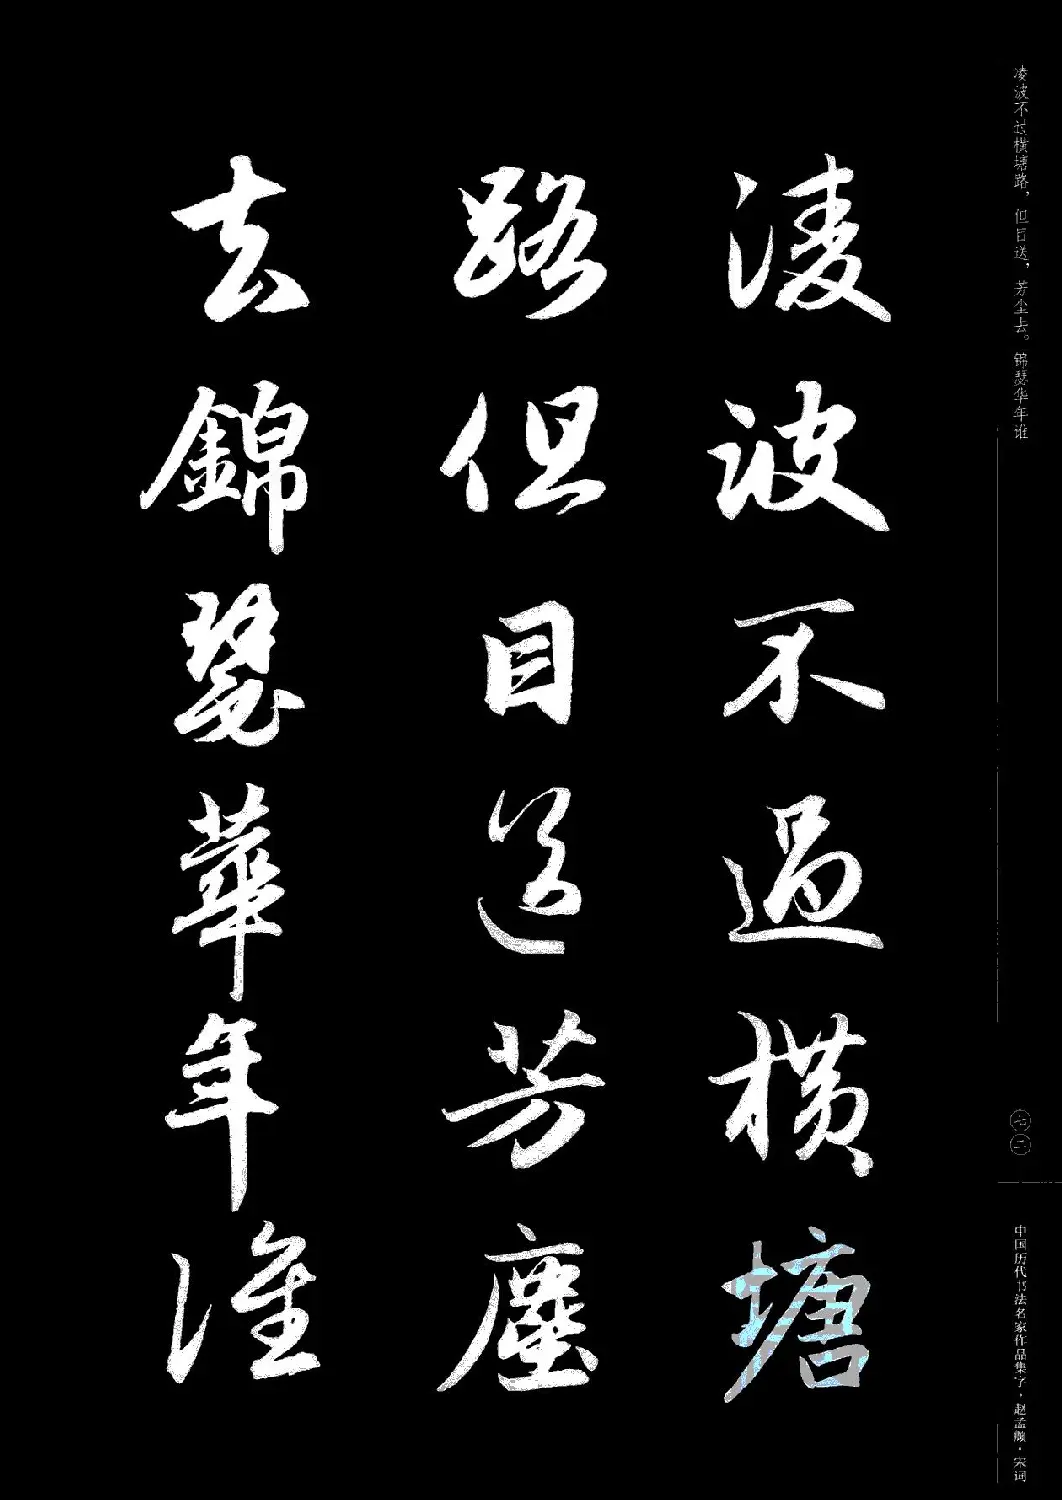 凌波不过横塘路，但目送，芳尘去。锦瑟华年谁
凌波不過橫塘
路但目送芳塵
去錦瑟華年誰
七一
中国历代书法名家作品集字·赵孟頫·宋词